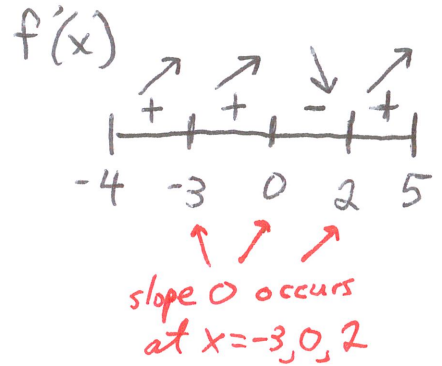 f'(x)
+ + - +
-4 -3 0 2 5
slope 0 occurs
at x=-3,0,2